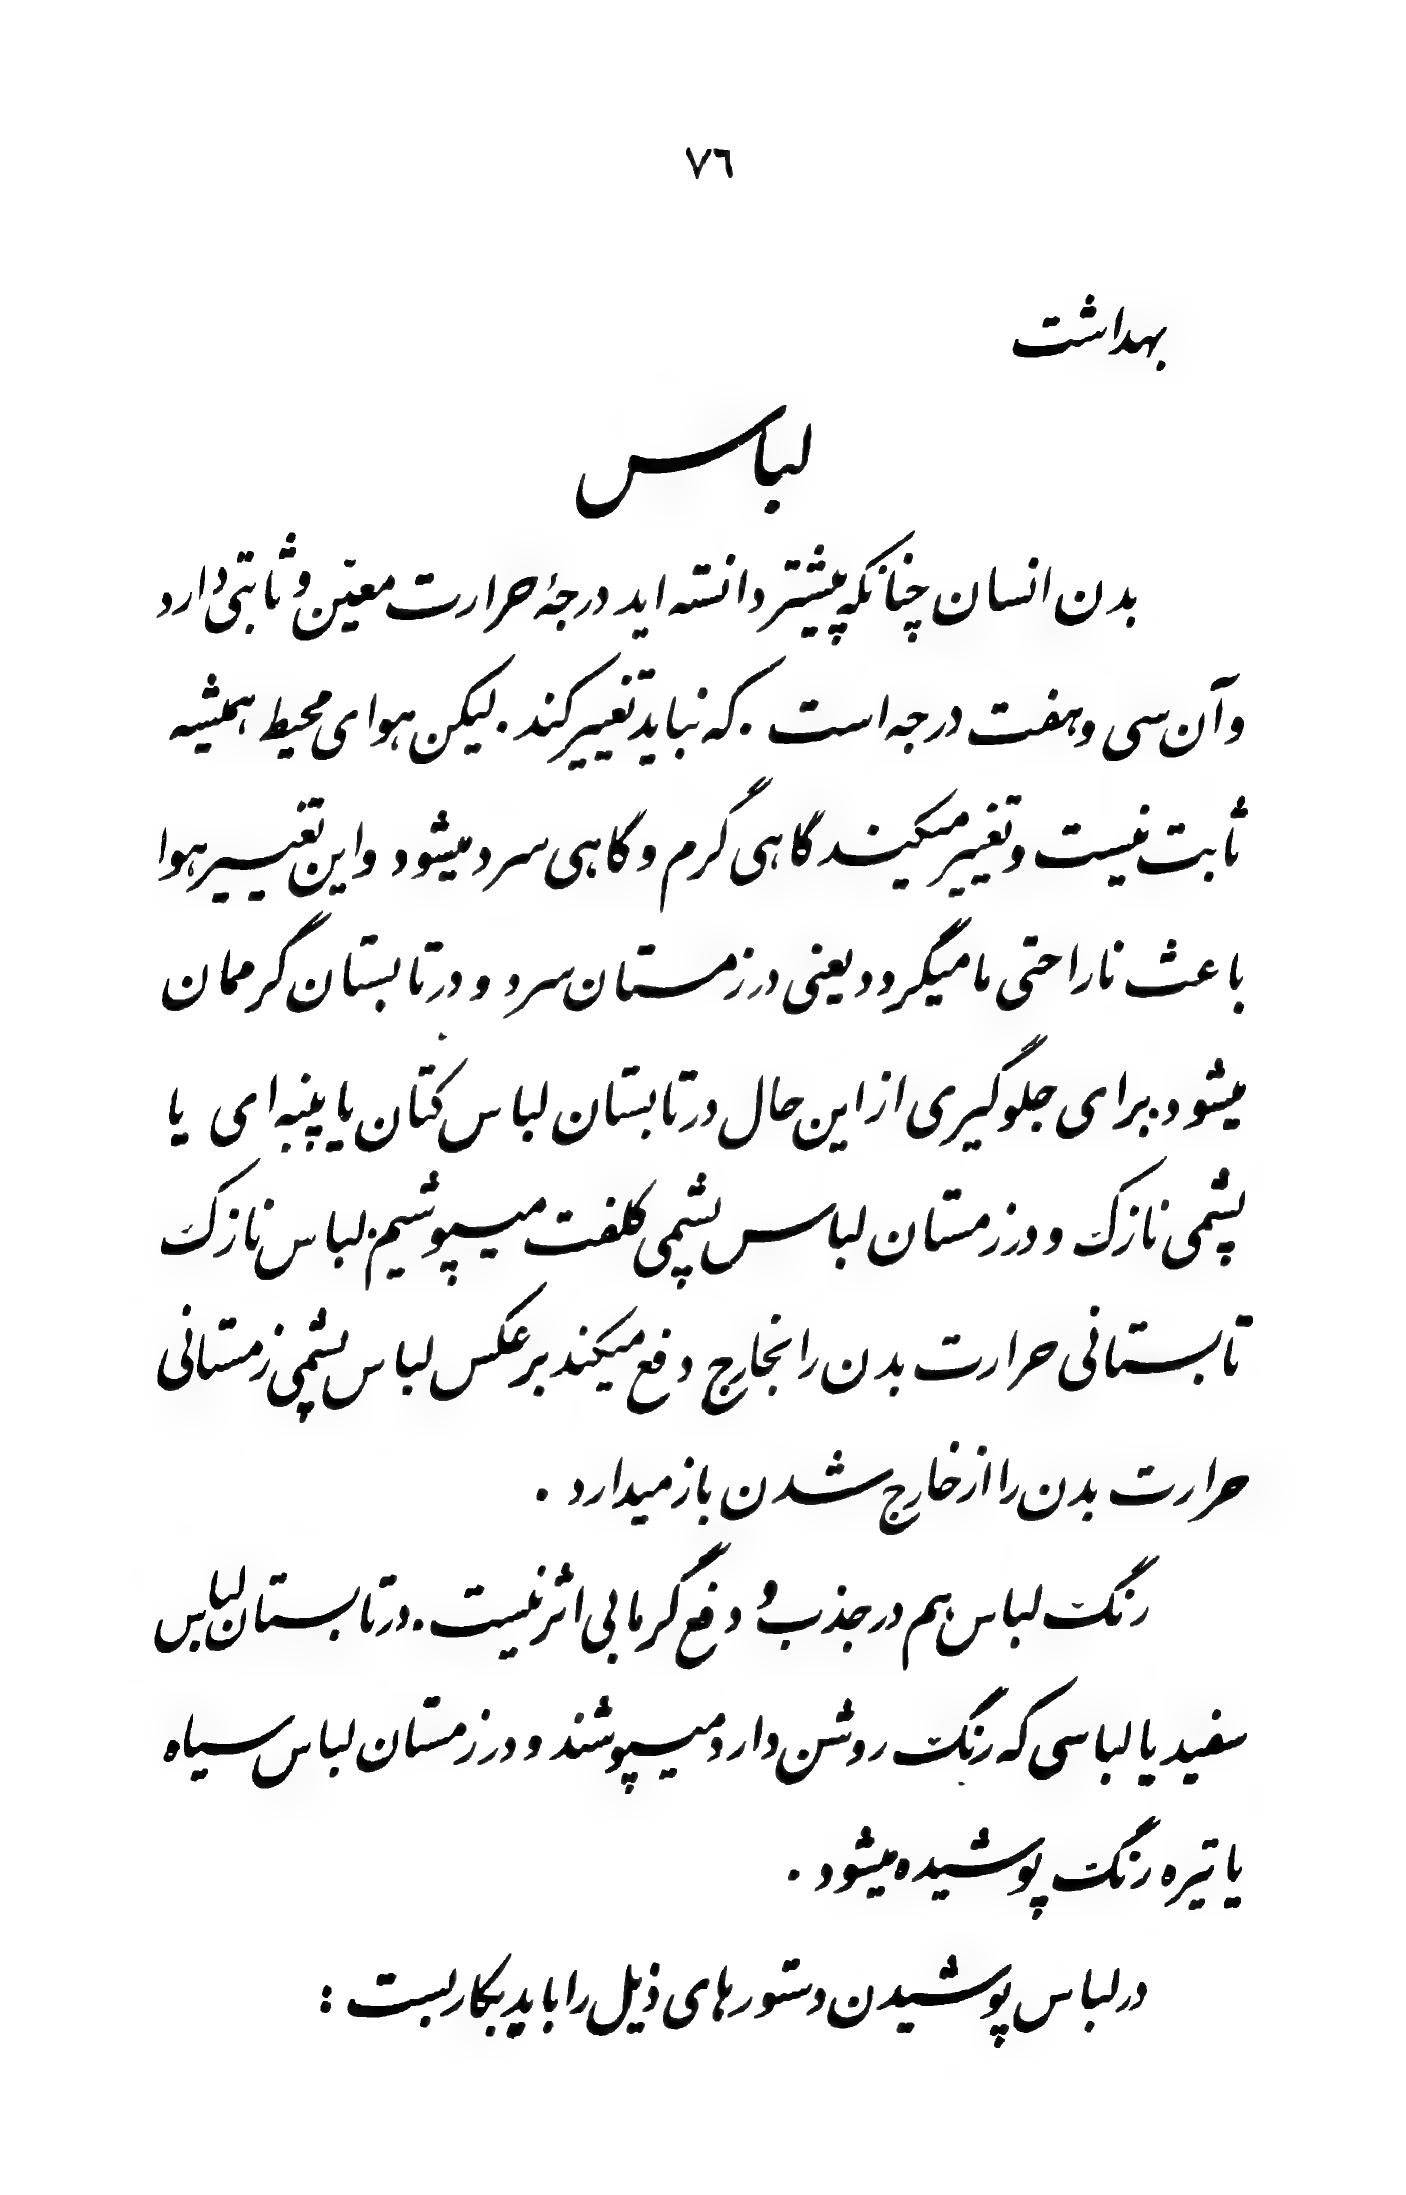 ٧٦
بهداشت
لباس
بدن انسان چنانکه پیشتر دانسته اید درجهٔ حرارت معیّن و ثابتی دارد
و آن سی و هفت درجه است . که نباید تغییر کند . لیکن هوای محیط همیشه
ثابت نیست و تغییر میکند گاهی گرم و گاهی سرد میشود و این تغییر هوا
باعث ناراحتی ما میگردد یعنی در زمستان سرد و در تابستان گرممان
میشود . برای جلوگیری از این حال در تابستان لباس کتان یا پنبه ای یا
پشمی نازک و در زمستان لباس پشمی کلفت میپوشیم . لباس نازک
تابستانی حرارت بدن را بخارج دفع میکند بر عکس لباس پشمی زمستانی
حرارت بدن را از خارج شدن باز میدارد .
رنگ لباس هم در جذب و دفع گرما بی اثر نیست . در تابستان لباس
سفید یا لباسی که رنگ روشن دارد میپوشند و در زمستان لباس سیاه
یا تیره رنگ پوشیده میشود .
در لباس پوشیدن دستورهای ذیل را باید بکار بست :